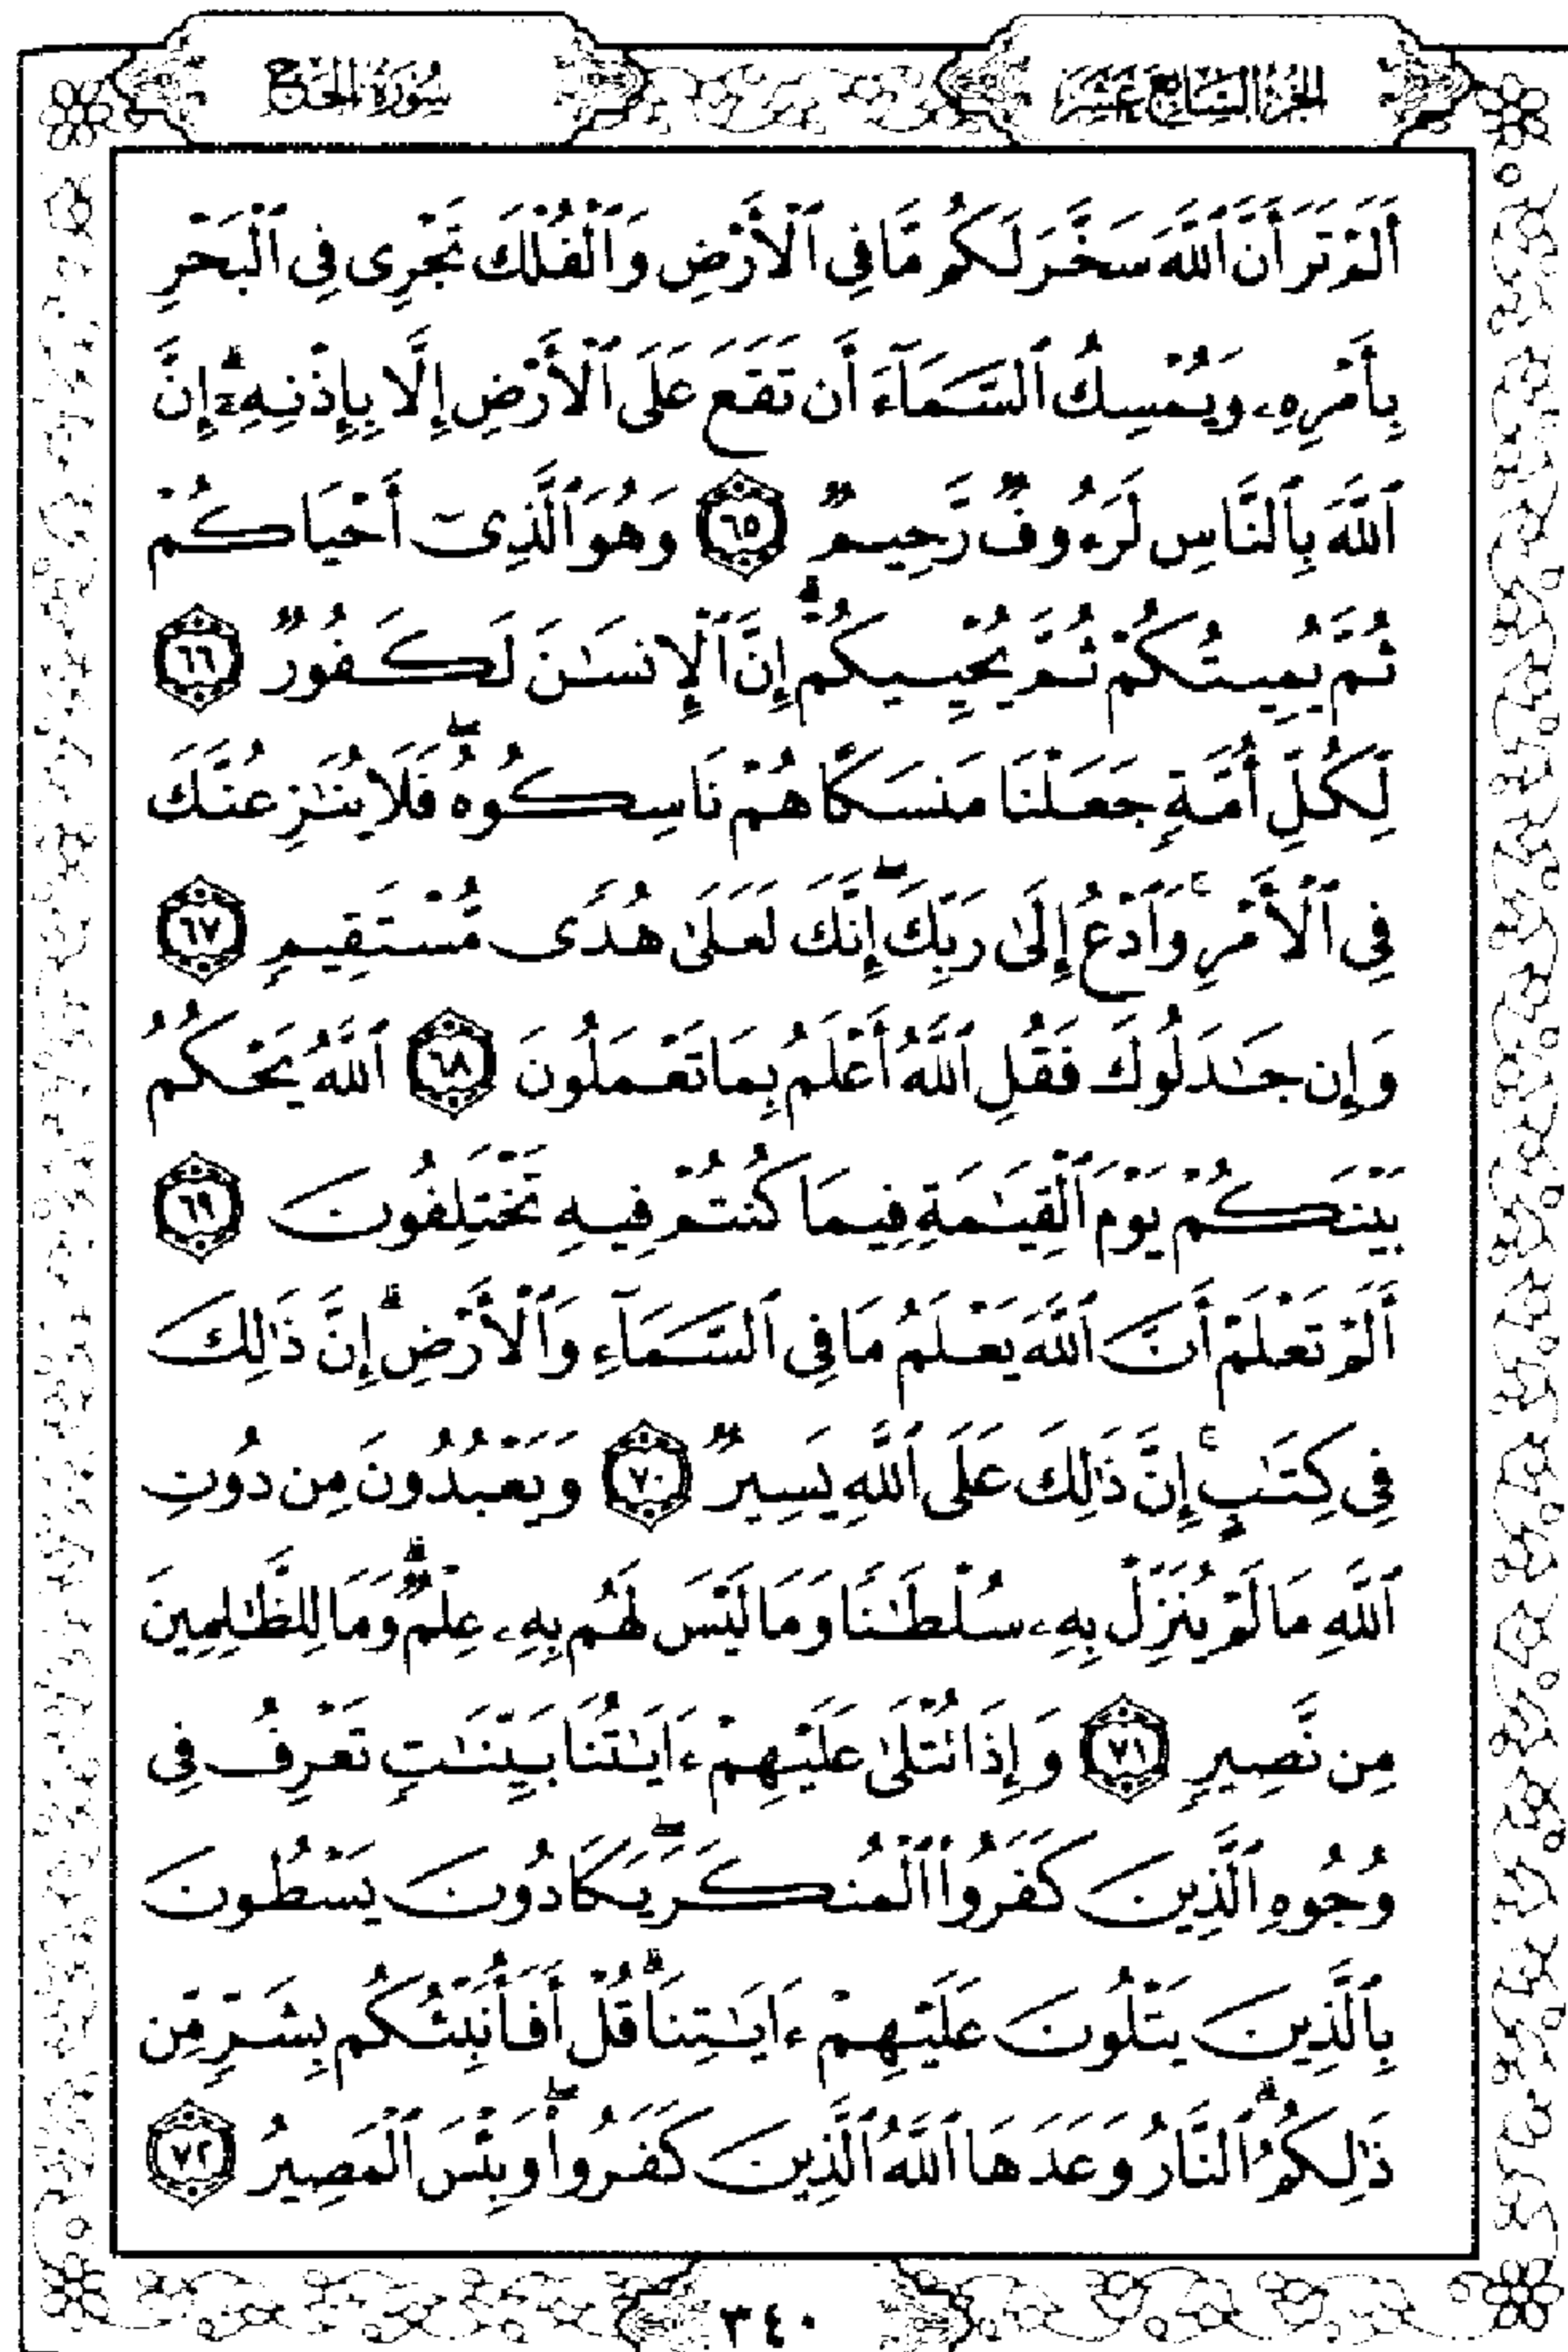 الجزء السابع عشر
سورة الحج
أَلَمْ تَرَ أَنَّ ٱللَّهَ سَخَّرَ لَكُم مَّا فِي ٱلْأَرْضِ وَٱلْفُلْكَ تَجْرِى فِي ٱلْبَحْرِ
بِأَمْرِهِۦ وَيُمْسِكُ ٱلسَّمَآءَ أَن تَقَعَ عَلَى ٱلْأَرْضِ إِلَّا بِإِذْنِهِۦٓ ۗ إِنَّ
ٱللَّهَ بِٱلنَّاسِ لَرَءُوفٌ رَّحِيمٌ ٦٥ وَهُوَ ٱلَّذِىٓ أَحْيَاكُمْ
ثُمَّ يُمِيتُكُمْ ثُمَّ يُحْيِيكُمْ ۗ إِنَّ ٱلْإِنسَٰنَ لَكَفُورٌ ٦٦
لِّكُلِّ أُمَّةٍ جَعَلْنَا مَنسَكًا هُمْ نَاسِكُوهُ ۖ فَلَا يُنَٰزِعُنَّكَ
فِي ٱلْأَمْرِ ۚ وَٱدْعُ إِلَىٰ رَبِّكَ ۖ إِنَّكَ لَعَلَىٰ هُدًى مُّسْتَقِيمٍ ٦٧
وَإِن جَٰدَلُوكَ فَقُلِ ٱللَّهُ أَعْلَمُ بِمَا تَعْمَلُونَ ٦٨ ٱللَّهُ يَحْكُمُ
بَيْنَكُمْ يَوْمَ ٱلْقِيَٰمَةِ فِيمَا كُنتُمْ فِيهِ تَخْتَلِفُونَ ٦٩
أَلَمْ تَعْلَمْ أَنَّ ٱللَّهَ يَعْلَمُ مَا فِي ٱلسَّمَآءِ وَٱلْأَرْضِ ۗ إِنَّ ذَٰلِكَ
فِي كِتَٰبٍ ۚ إِنَّ ذَٰلِكَ عَلَى ٱللَّهِ يَسِيرٌ ٧٠ وَيَعْبُدُونَ مِن دُونِ
ٱللَّهِ مَا لَمْ يُنَزِّلْ بِهِۦ سُلْطَٰنًا وَمَا لَيْسَ لَهُم بِهِۦ عِلْمٌ ۗ وَمَا لِلظَّٰلِمِينَ
مِن نَّصِيرٍ ٧١ وَإِذَا تُتْلَىٰ عَلَيْهِمْ ءَايَٰتُنَا بَيِّنَٰتٍ تَعْرِفُ فِي
وُجُوهِ ٱلَّذِينَ كَفَرُوا۟ ٱلْمُنكَرَ ۖ يَكَادُونَ يَسْطُونَ
بِٱلَّذِينَ يَتْلُونَ عَلَيْهِمْ ءَايَٰتِنَا ۗ قُلْ أَفَأُنَبِّئُكُم بِشَرٍّ مِّن
ذَٰلِكُمُ ۗ ٱلنَّارُ وَعَدَهَا ٱللَّهُ ٱلَّذِينَ كَفَرُوا۟ ۖ وَبِئْسَ ٱلْمَصِيرُ ٧٢
٣٤٠